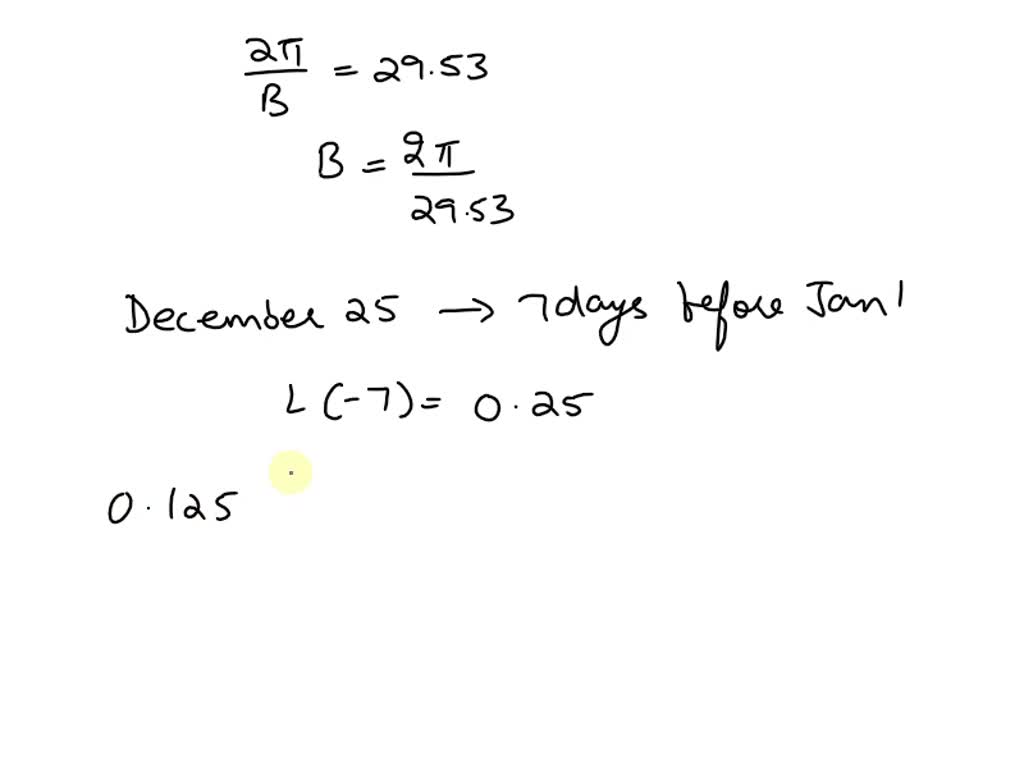 2π/B = 29.53
B = 2π/29.53
December 25 → 7 days before Jan 1
L (-7) = 0.25
0.125